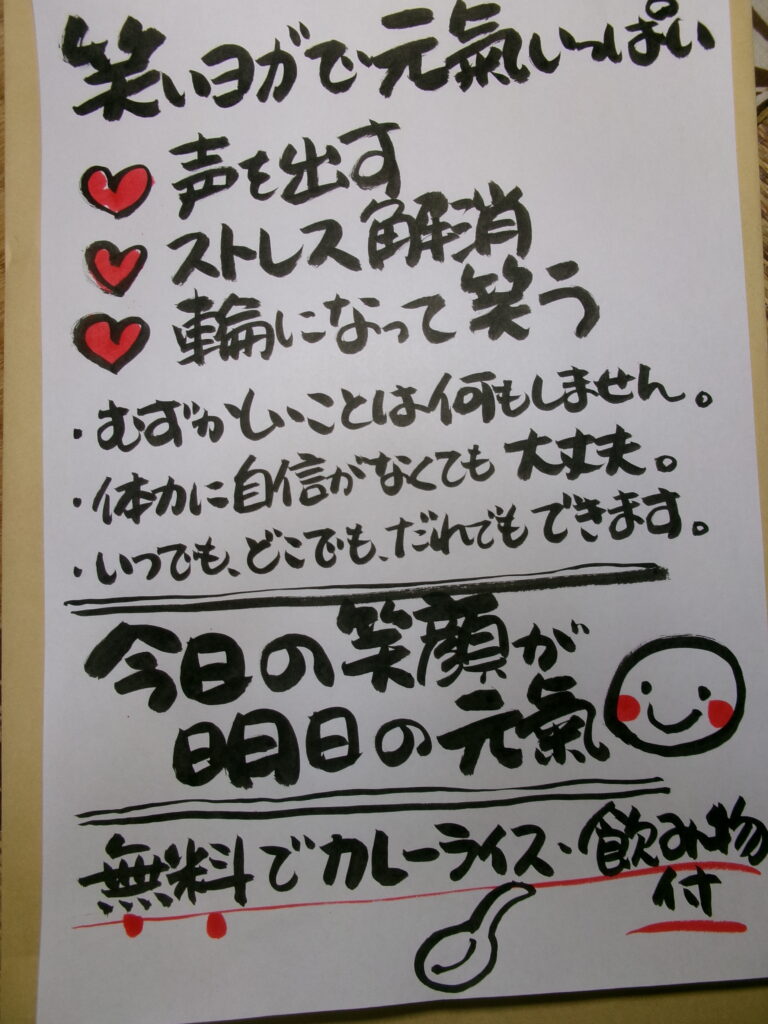 笑いヨガで元氣いっぱい
声を出す
ストレス解消
輪になって笑う
・むずかしいことは何もしません。
・体力に自信がなくても大丈夫。
・いつでも、どこでも、だれでもできます。
今日の笑顔が
明日の元氣
無料でカレーライス・飲み物
付